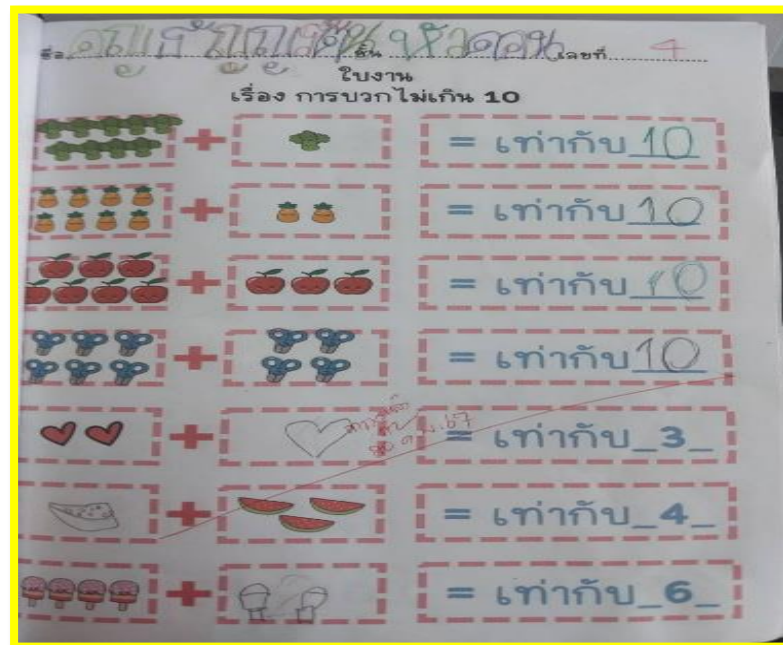 ชื่อ ชั้น เลขที่ 4
ใบงาน
เรื่อง การบวกไม่เกิน 10
+ = เท่ากับ 10
+ = เท่ากับ 10
+ = เท่ากับ 10
+ = เท่ากับ 10
+ = เท่ากับ_3_
+ = เท่ากับ_4_
+ = เท่ากับ_6_